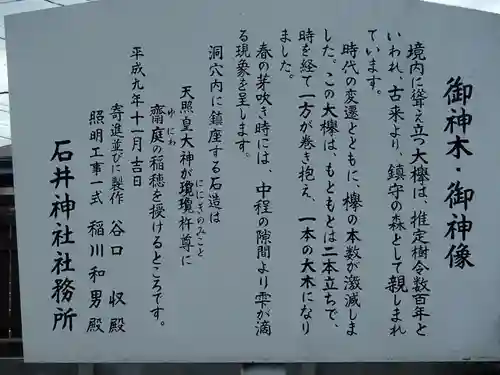 御神木・御神像
境内に聳え立つ大欅は、推定樹令数百年と
いわれ、古来より、鎮守の森として親しまれ
ています。
時代の変遷とともに、欅の本数が激減しま
した。この大欅は、もともとは二本立ちで、
時を経て一方が巻き抱え、一本の大木になり
ました。
春の芽吹き時には、中程の隙間より雫が滴
る現象を呈します。
洞穴内に鎮座する石造は
天照皇大神が瓊瓊杵尊に
ににぎのみこと
斎庭の稲穂を授けるところです。
ゆにわ
平成九年十一月吉日
寄進並びに製作 谷口 収殿
照明工事一式 稲川和男殿
石井神社社務所